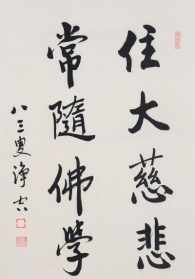 住大慈悲
常隨佛學
八三叟淨空